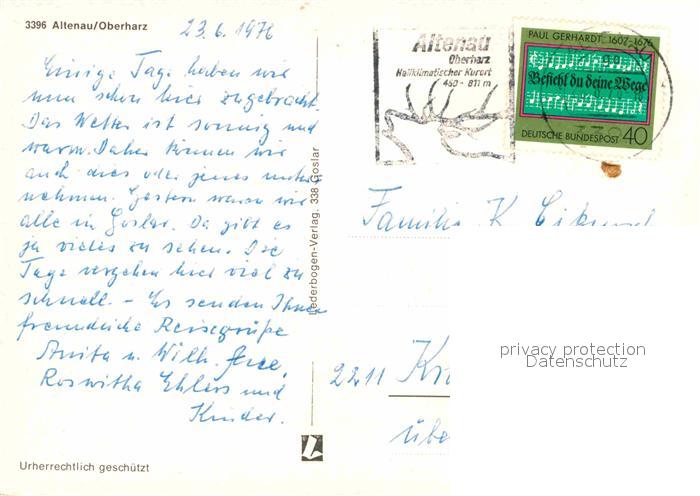 3396 Altenau/Oberharz
23.6.1976
Einige Tage haben wir
nun schon hier zugebracht.
Das Wetter ist sonnig und
warm. Daher können wir
auch dies oder jenes unter-
nehmen. Gestern waren wir
alle in Goslar. Da gibt es
ja vieles zu sehen. Die
Tage vergehen hier viel zu
schnell. - Es senden Ihnen
freundliche Reisegrüße
Anita u. Wilh.
Roswitha Ehlers und
Kinder.
Urherrechtlich geschützt
Federbogen-Verlag, 338 Goslar
Altenau
Oberharz
Heilklimatischer Kurort
450 - 811 m
PAUL GERHARDT · 1607-1676
Befiehl du deine Wege
DEUTSCHE BUNDESPOST 40
Familie K.
2211
übe
privacy protection
Datenschutz